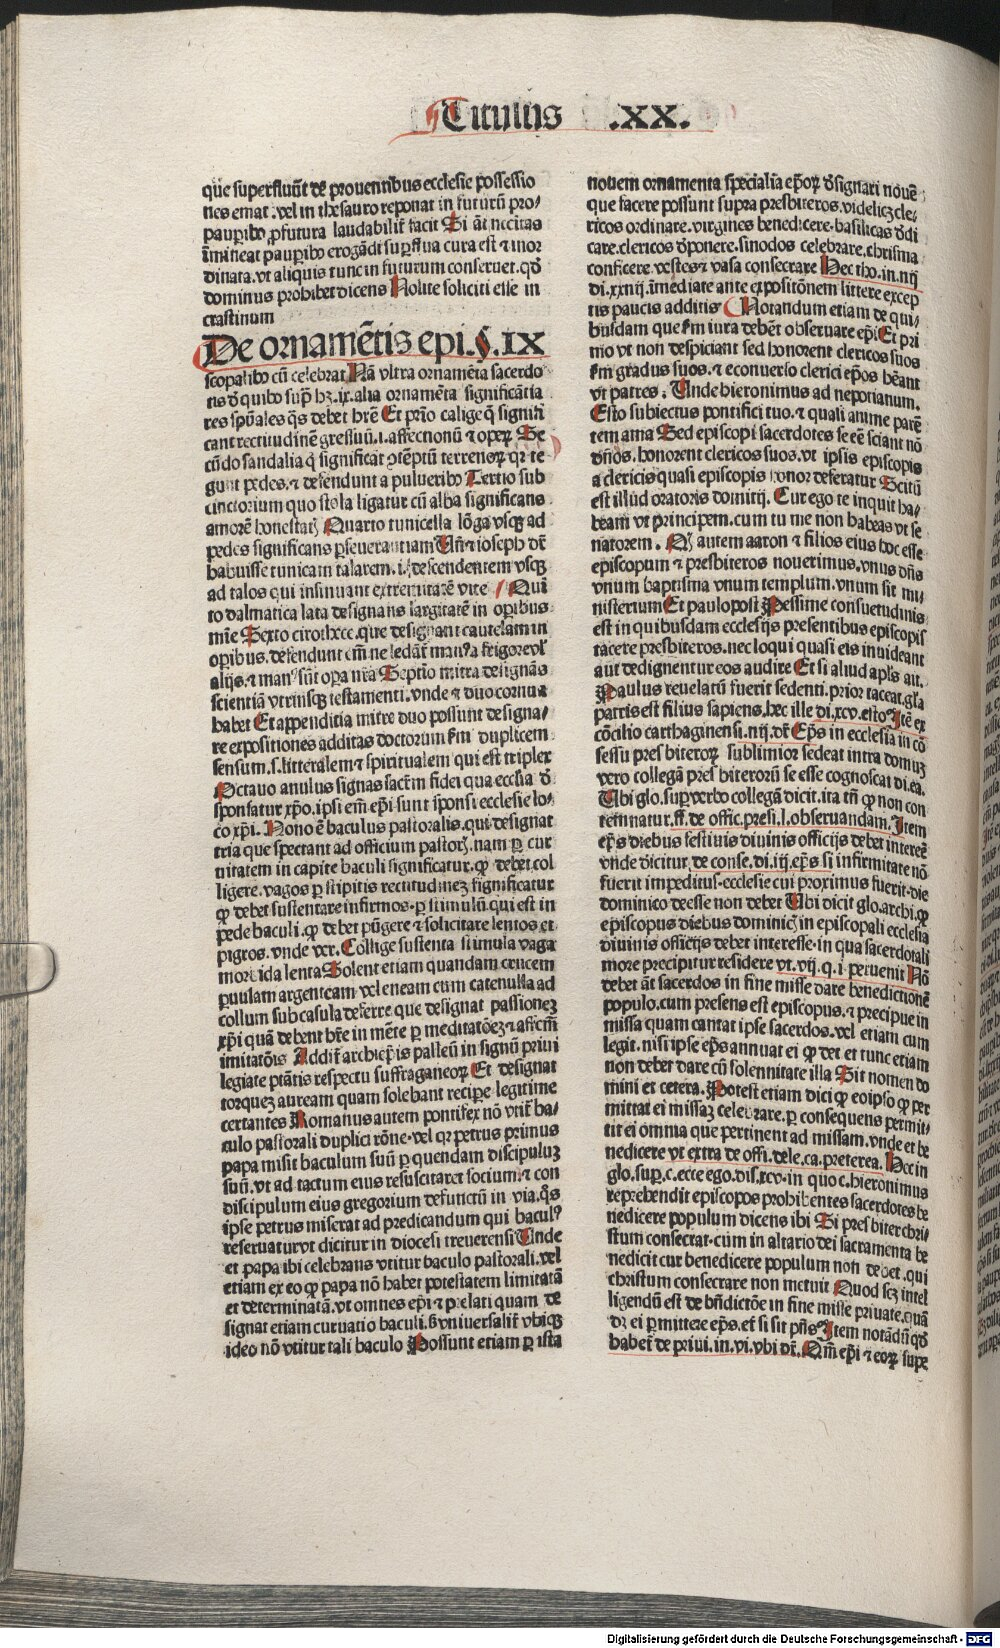 Titulus .XX.
que superfluũt de prouentibus ecclesie possessio
nes emat. vel in thesauro reponat in futurũ pro/
pauꝑibꝰ ꝓfutura laudabilit̃ facit Si āt nccitas
īmineat pauꝑibꝰ erogādi suꝑflua cura est ⁊ inor
dinata. vt aliquis tunc in futurum conseruet. qđ
dominus prohibet dicens Nolite soliciti esse in
crastinum
De ornamētis epi. §. IX
scopalibꝰ cũ celebrat Nā vltra ornamēta sacerdo
tis ð quibꝰ supͣ hꝫ. ix. alia ornamēta significātia
res spũales q̃s debet hr̃e Et prīo calige q̃ signifi
cant rectitudinē gressuũ. i. affectionũ ⁊ operꝝ Se
cũdo sandalia q̃ significāt ꝯtēptũ terrenoꝝ qꝛ te
gunt pedes. ⁊ defendunt a pulueribꝰ Tertio sub
cinctorium quo stola ligatur cũ alba significans
amorē honestatꝭ Quarto tunicella lōga vsqꝫ ad
pedes significans ꝑseuerantiam Uñ ⁊ ioseph dr̃
habuisse tunicam talarem. i. descendentem vsqꝫ
ad talos qui insinuant extremitatē vite Quin
to dalmatica lata designans largitatē in oꝑibus
mīe Sexto cirothece. que designant cautelam in
oꝑibus. defendunt em̄ ne ledāt̃ manꝰ a frigore vl̓
alijs. ⁊ manꝰ sūt oꝑa nr̃a Septīo mitra designās
scientiā vtriusqꝫ testamenti. vnde ⁊ duo cornua
habet Et appenditia mitre duo possunt designa/
re expositiones additas doctorum fm̄ duplicem
sensum. s. litteralem ⁊ spiritualem qui est triplex
Octauo anulus signas sacr̄m fidei qua ecclsia ð
sponsatur xp̄o. ipsi em̄ epi sunt sponsi ecclesie lo/
co xp̄i. Nono ē baculus pastoralis. qui designat
tria que spectant ad officium pastorꝭ. nam ꝑ cur
uitatem in capite baculi significatur. ꝙ debet col
ligere. vagos ꝑ stipitis rectitudinez significatur
ꝙ debet sustentare infirmos. ꝑ stimulũ. qui est in
pede baculi. ꝙ debet pũgere ⁊ solicitare lentos et
pigros. vnde ver. Collige sustenta stimula vaga
morbida lenta Solent etiam quandam crucem
paruulam argenteam. vel eneam cum catenulla ad
collum sub casula deferre que designat passionez
xp̄i quā debent hr̃e in mēte ꝑ meditatōez ⁊ affectũ
imitatōis Addit̃ archiepis palleũ in signũ priui
legiate ptātis respectu suffraganeorꝝ Et designat
torquez auream quam solebant reciꝑe legitime
certantes Romanus autem pontifex nō vtit̃ ba/
culo pastorali duplici rōne. vel qꝛ petrus primus
papa misit baculum suũ ꝑ quendam discipuluz
suũ. vt ad tactum eius resuscitaret socium. ⁊ con
discipulum eius gregorium defũctũ in via. q̄s
ipse petrus miserat ad predicandum qui baculꝰ
reseruatur vt dicitur in diocesi treuerensi Unde
et papa ibi celebrans vtitur baculo pastorali. vel
etiam ex eo ꝙ papa nō habet potestatem limitatā
et determinatā. vt omnes epi ⁊ prelati quam de
signat etiam curuatio baculi. s̓ vniuersalit̃ vbiqꝫ
ideo nō vtitur tali baculo Possunt etiam ꝑ ista
nouem ornamenta specialia epoꝝ ðsignari nouē
que facere possunt supra presbiteros. videlicꝫ cle/
ricos ordinare. virgines benedicere. basilicas ðdi
care. clericos ðponere. sinodos celebrare. chrisma
conficere. vestes ⁊ vasa consecrare Hec tho. in. iiij
di. xxiiij. īmediate ante expositōnem littere excep
tis paucis additis Notandum etiam de qui/
busdam que fm̄ iura debēt obseruare epi Et pri
mo vt non despiciant sed honorent clericos suos
fm̄ gradus suos. ⁊ econuerso clerici epos hēant
vt patres. Unde hieronimus ad nepotianum.
Esto subiectus pontifici tuo. ⁊ quasi anime parē
tem ama Sed episcopi sacerdotes se eē sciant nō
dños. honorent clericos suos. vt ipsis episcopis
a clericis quasi episcopis honor deferatur Scitũ
est illud oratoris domitij. Cur ego te inquit ha/
beam vt principem. cum tu me non habeas vt se
natorem. Qđ autem aaron ⁊ filios eius hoc esse
episcopum ⁊ presbiteros nouerimus. vnus dñs
vnum baptisma vnum templum. vnum sit mi/
nisterium Et paulo post Pessime consuetudinis
est in quibusdam ecclesijs presentibus episcopis
tacere presbiteros. nec loqui quasi eis inuideant
aut dedignentur eos audire Et si aliud apl̓s ait.
Paulus reuelatũ fuerit sedenti. prior taceat. gl̓a
patris est filius sapiens. hec ille di. xcv. esto Itē ex
cōcilio carthaginensi. iiij. dr̃ Eps in ecclesia in cō
sessu presbiteroꝝ sublimior sedeat intra domuz
vero collegā presbiterorũ se esse cognoscat di. ea.
Ubi glo. suꝑ verbo collegā dicit. ita tñ ꝙ non con
temnatur. ff. de offic. presi. l. obseruandam. Item
eps diebus festiuis diuinis officijs debet interee
vnde dicitur. de conse. di. iij. eps si infirmitate nō
fuerit impeditus. ecclesie cui proximus fuerit. die
dominico deesse non debet Ubi dicit glo. archi. ꝙ
episcopus diebus dominicꝭ in episcopali ecclesia
diuinis officijs debet interesse. in qua sacerdotali
more precipitur residere vt. vij. q. i. peruenit Nō
debet āt sacerdos in fine misse dare benedictionē
populo. cum presens est episcopus. ⁊ precipue in
missa quam cantat ipse sacerdos. vel etiam cum
legit. nisi ipse eps annuat ei ꝙ det et tunc etiam
non debet dare cũ solennitate illa Sit nomen do
mini et cetera. Potest etiam dici ꝙ eo ipso ꝙ per
mittat ei missaz celebrare. ꝑ consequens permit/
tit ei omnia que pertinent ad missam. vnde et be
nedicere vt extra de offi. dele. ca. preterea. Hec in
glo. suꝑ. c. ecce ego. dis. xcv. in quo c. hieronimus
reprehendit episcopos prohibentes sacerdotes be
nedicere populum dicens ibi Si presbiter chri/
stum consecrat. cum in altario dei sacramenta be
nedicit cur benedicere populum non debet. qui
christum consecrare non metuit Quod scꝫ intel
ligendũ est de bñdictōe in fine misse priuate. quā
dꝫ ei permittere eps. et̃ si sit pñs Item notādũ qđ
habet̃ de priui. in. vi. vbi dr̃. Qm̄ epi ⁊ eoꝝ supe
Digitalisierung gefördert durch die Deutsche Forschungsgemeinschaft - DFG